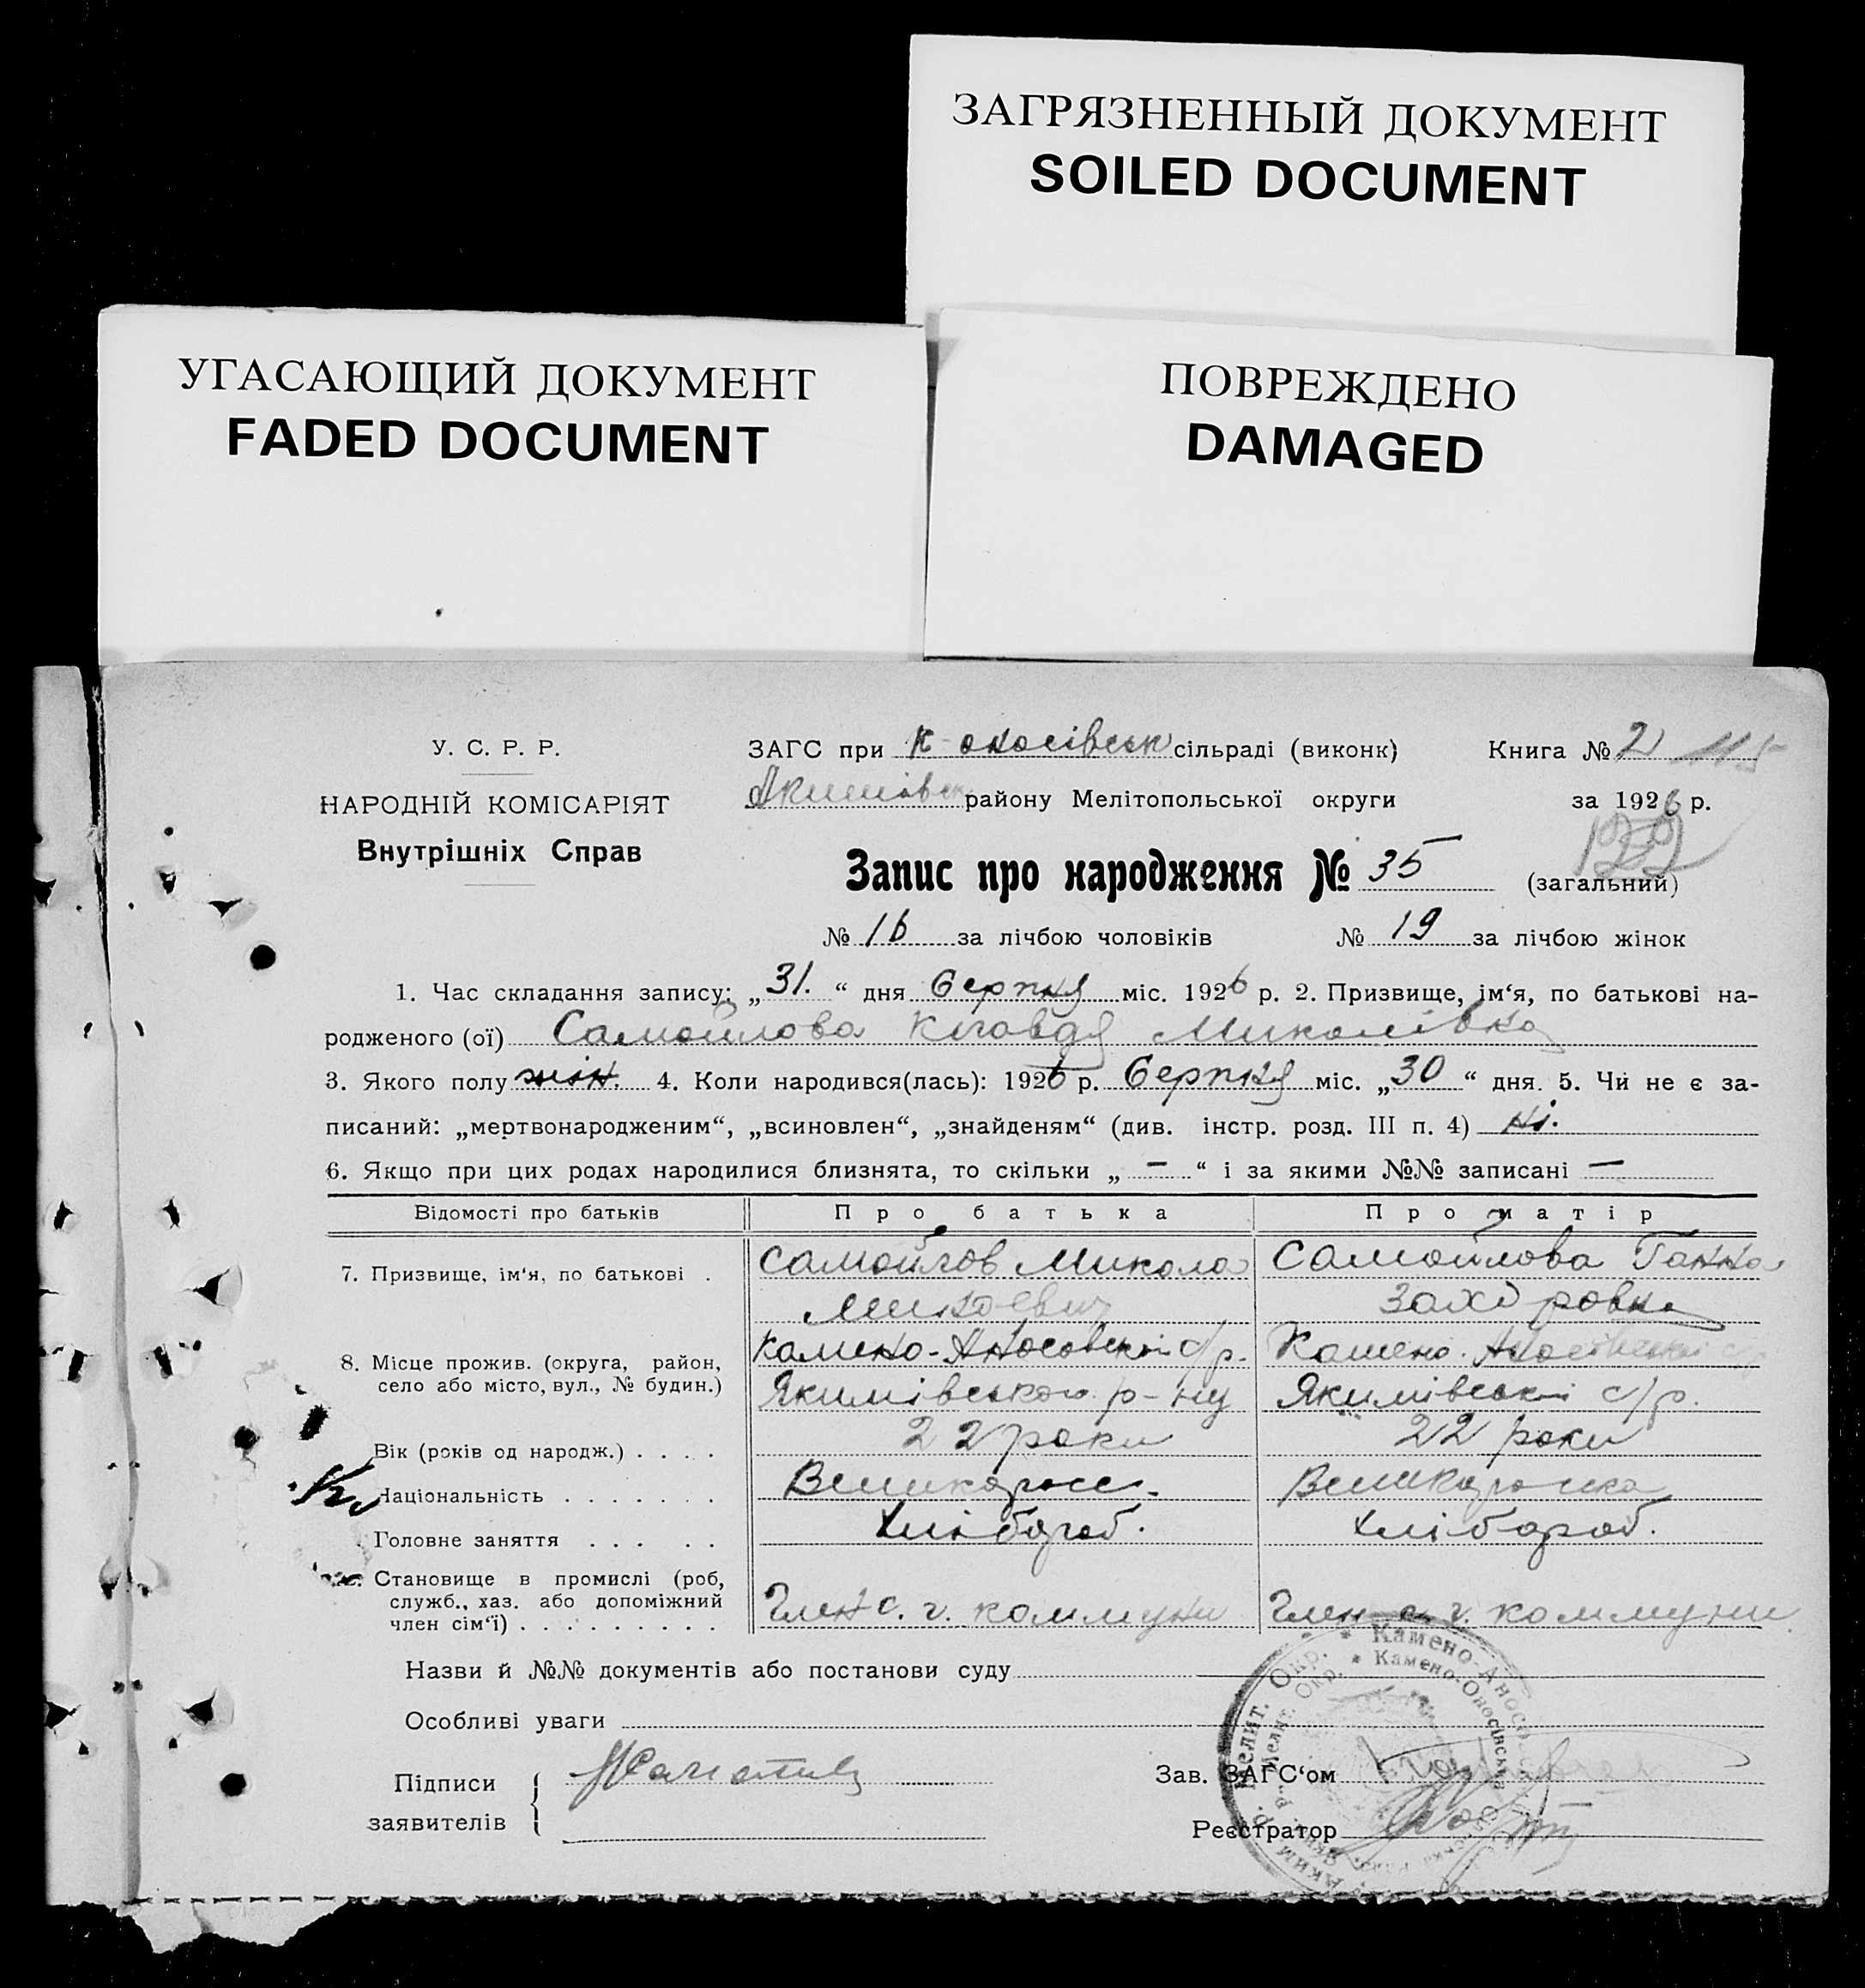 ЗАГРЯЗНЕННЫЙ ДОКУМЕНТ
SOILED DOCUMENT
УГАСАЮЩИЙ ДОКУМЕНТ
FADED DOCUMENT
ПОВРЕЖДЕНО
DAMAGED
У. С. Р. Р.
НАРОДНІЙ КОМІСАРІЯТ
Внутрішніх Справ
ЗАГС при К-оносівськ сільраді (виконк) Книга № 2 115
Якимівськ району Мелітопольської округи за 1926 р.
Запис про народження № 35 (загальний)
№ 16 за лічбою чоловіків № 19 за лічбою жінок
1. Час складання запису: „31.“ дня Серпня міс. 1926 р. 2. Призвище, ім‘я, по батькові на-
родженого (ої) Самойлова Клавдя Миколівка
3. Якого полу жін. 4. Коли народився(лась): 1926 р. Серпня міс. „30“ дня. 5. Чи не є за-
писаний: „мертвонародженим“, „всиновлен“, „знайденям“ (див. інстр. розд. III п. 4) ні.
6. Якщо при цих родах народилися близнята, то скільки „ — “ і за якими №№ записані —
Відомості про батьків Про батька Про матір
7. Призвище, ім‘я, по батькові . Самойлов Микола Самойлова Ганна
Захаровна
8. Місце прожив. (округа, район, Камено-Аносовской с/р. Камено-
село або місто, вул., № будин.) Якимівського р-ну Якимівської с/р.
Вік (років од народж.) . . . . 22 роки 22 роки
Національність . . . . . . . Великорос. Великороска
Головне заняття . . . . . Хлібороб. Хлібороб.
Становище в промислі (роб,
служб., хаз. або допоміжний
член сім‘ї) . . . . . . . . . Член с. г. коммуни Член с. г. коммуни
Назви й №№ документів або постанови суду
Особливі уваги
Підписи
заявителів
Зав. ЗАГС‘ом
Реєстратор